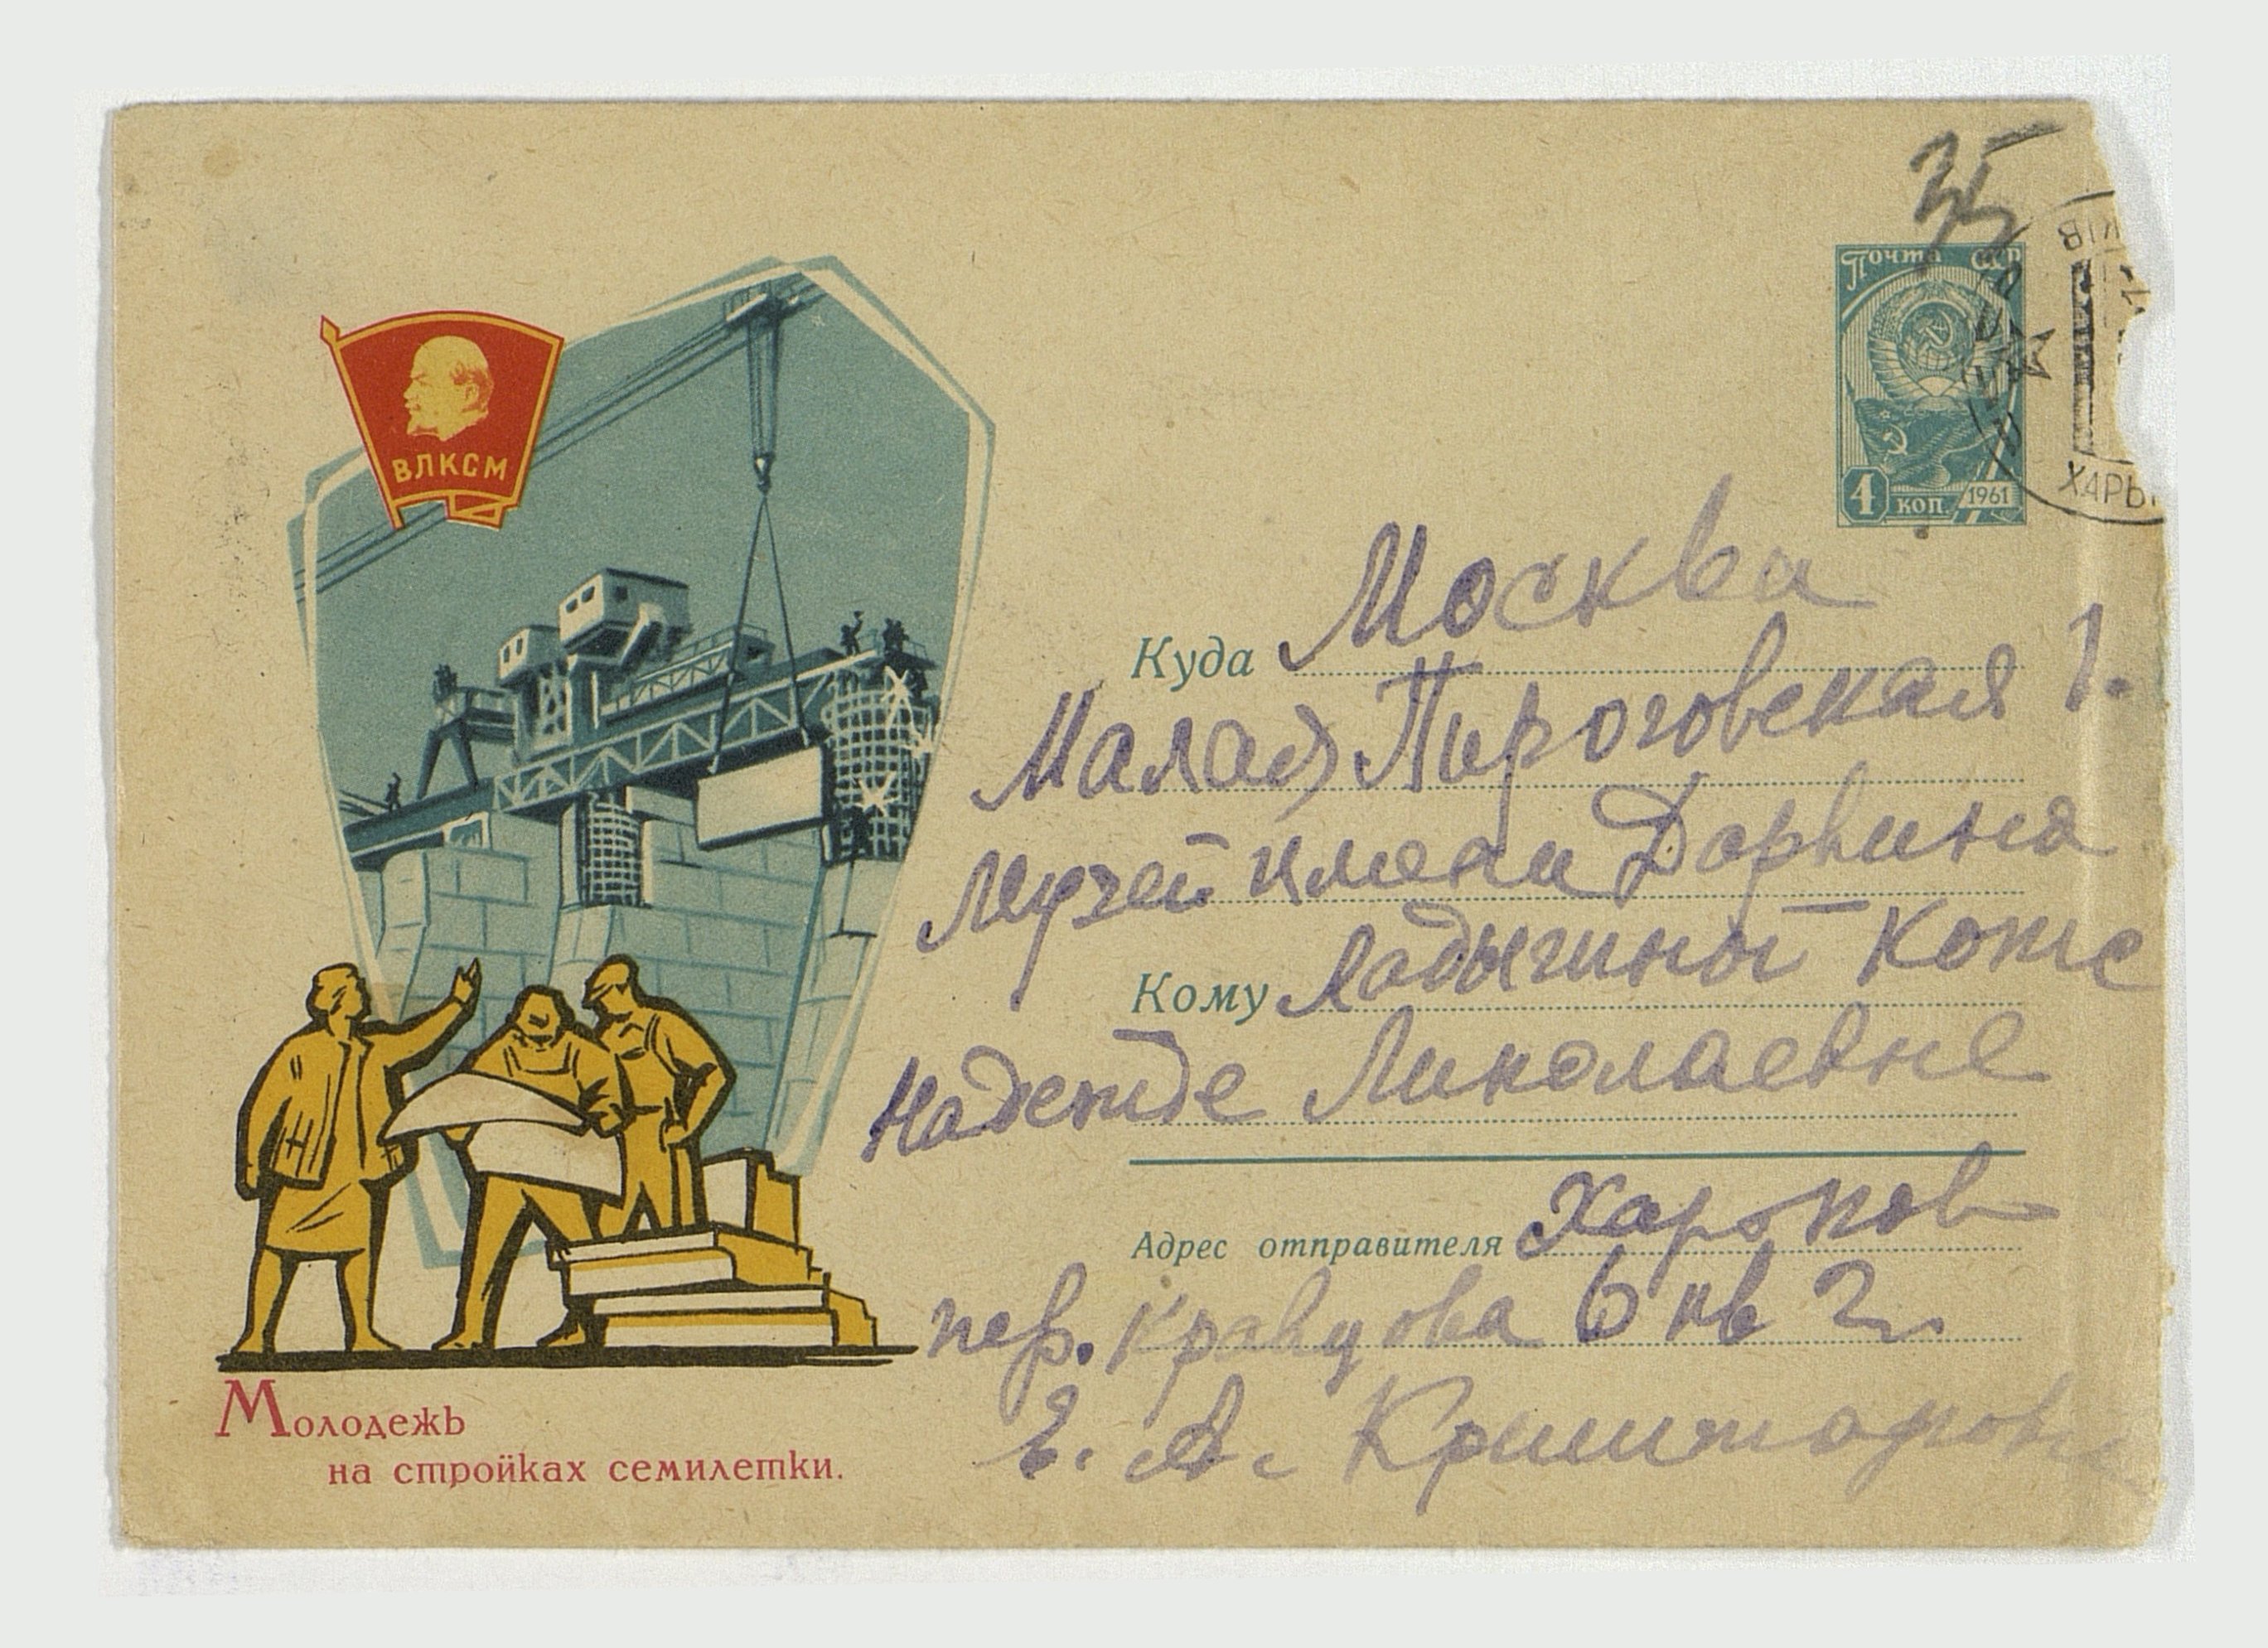 35
Почта СССР
4 коп. 1961
ХАРЬ
ВЛКСМ
Куда Москва
Малая Пироговская 1.
Музей имени Дарвина
Кому Ладыгиной Котс
Надежде Николаевне
Адрес отправителя Харьков
пер. Кравцова 6 кв 2
Е. А.
Молодежь
на стройках семилетки.